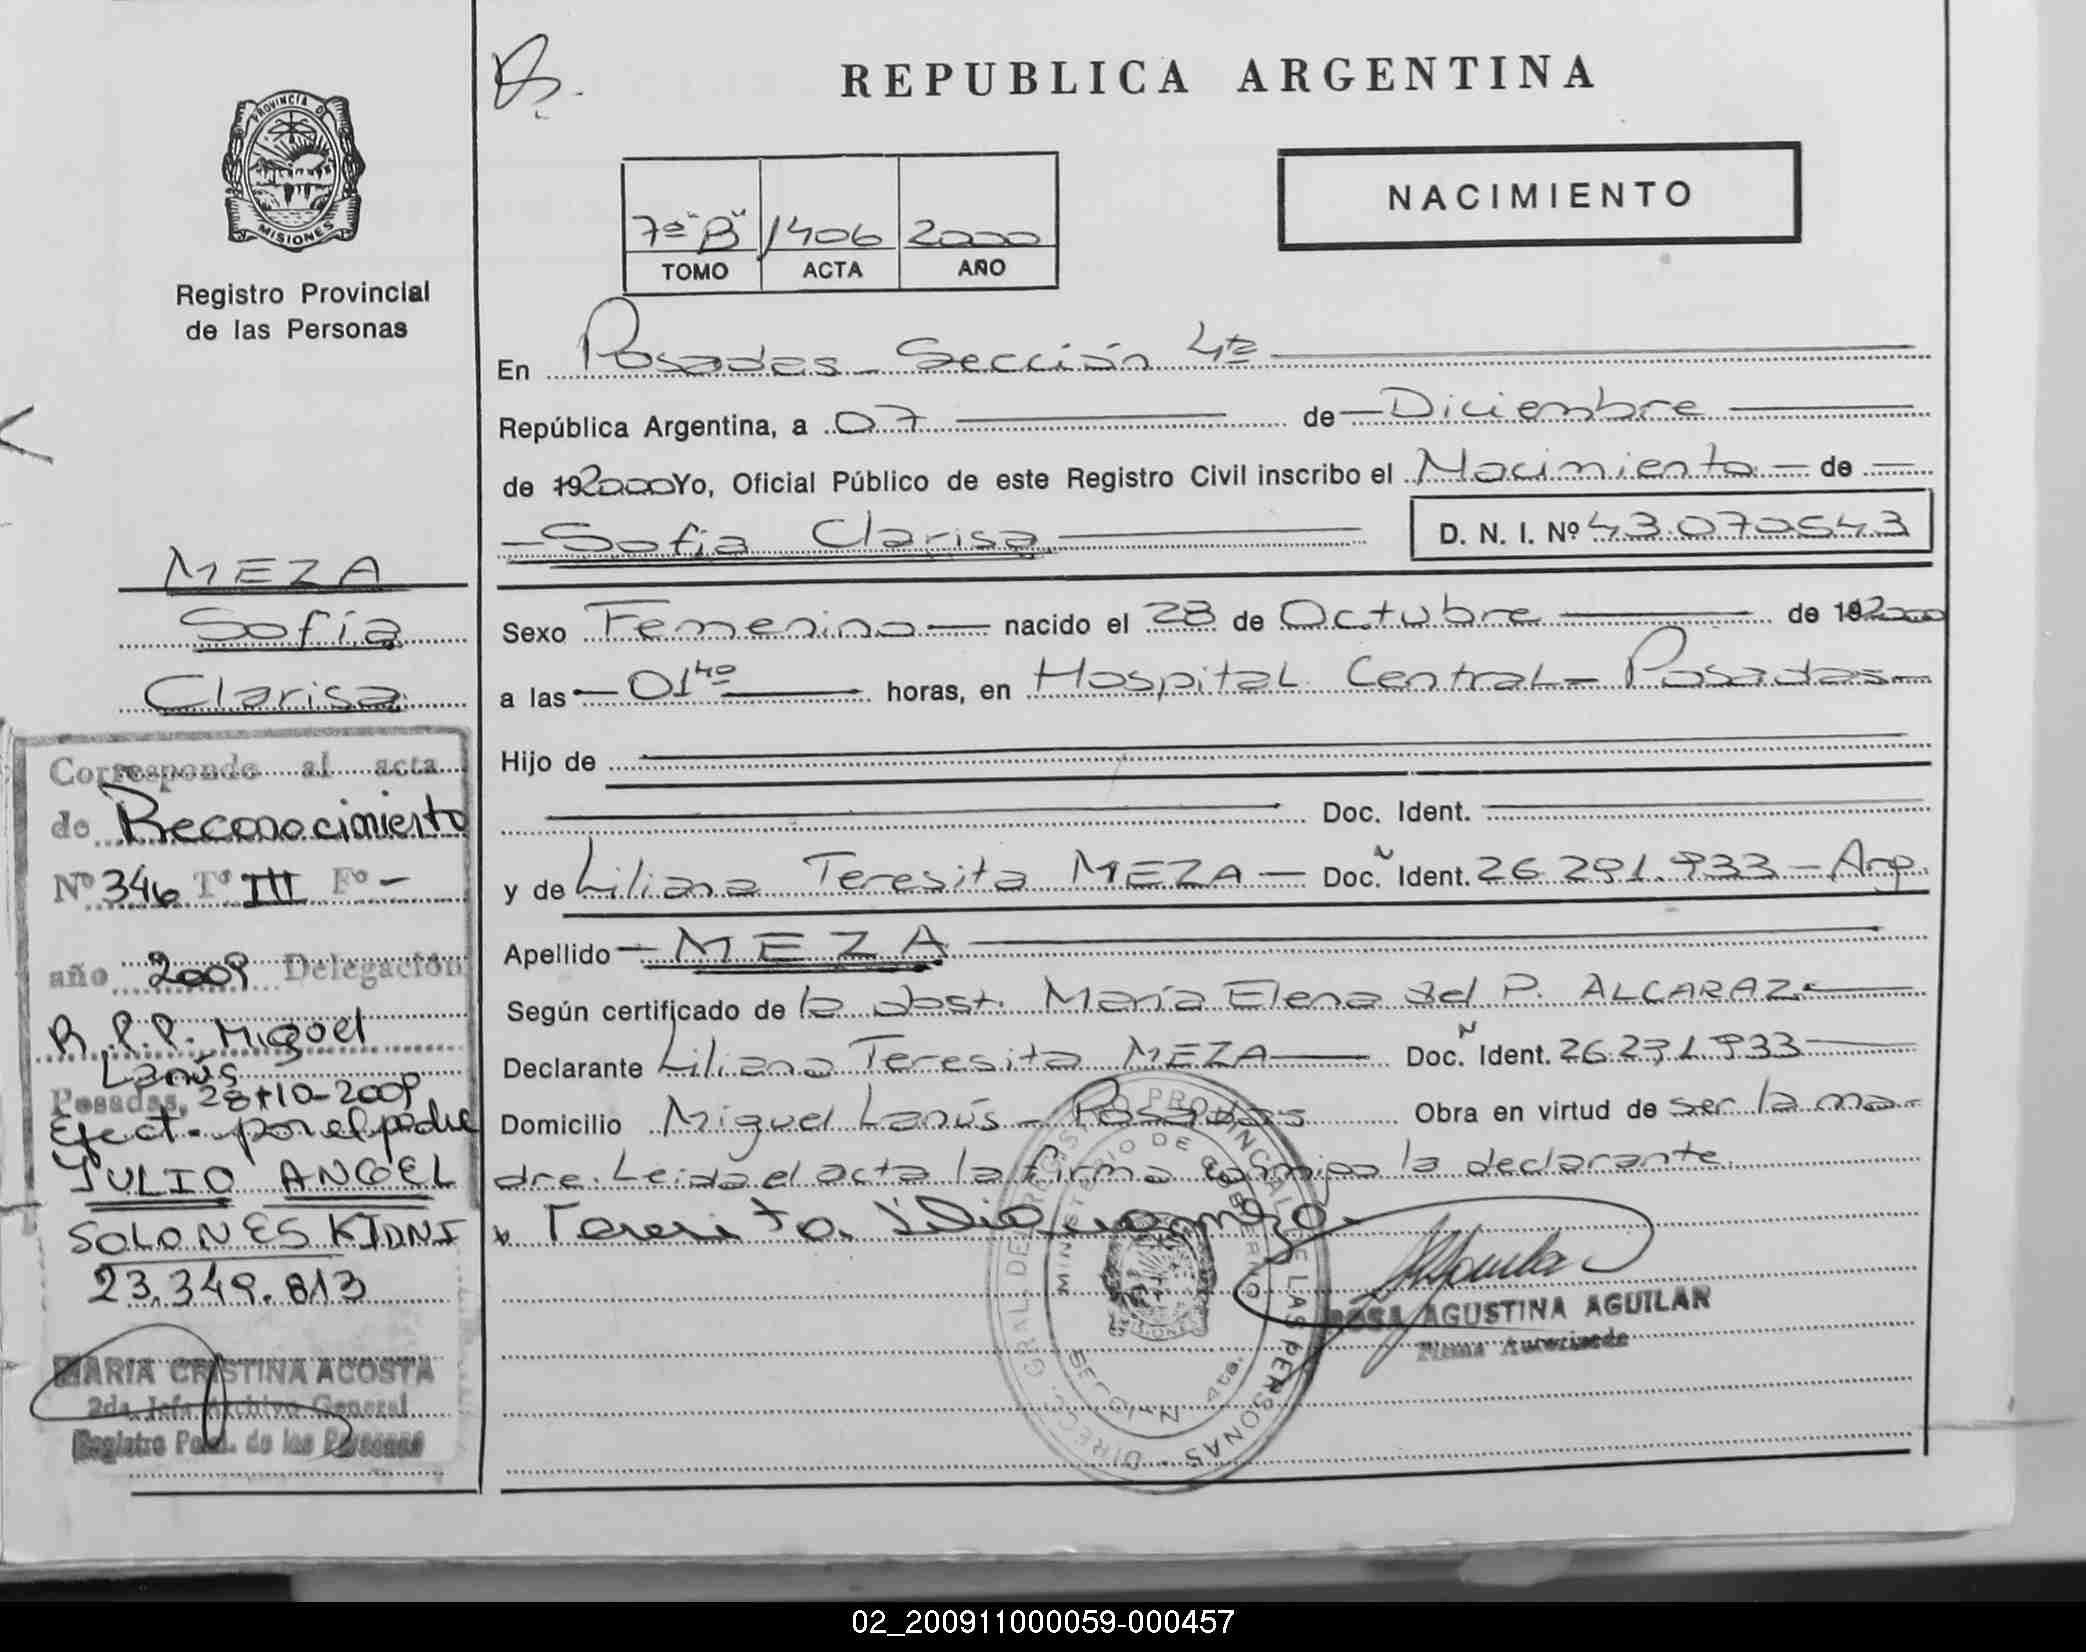 REPUBLICA ARGENTINA
PROVINCIA DE MISIONES
Registro Provincial
de las Personas
7ª "B" 1406 2000
TOMO ACTA AÑO
NACIMIENTO
En Posadas - Sección 4ta
República Argentina, a 07 de Diciembre
de 192000 Yo, Oficial Público de este Registro Civil inscribo el Nacimiento de
Sofia Clarisa D. N. I. Nº 43.070543
Sexo Femenino nacido el 28 de Octubre de 192000
a las 01 40 horas, en Hospital Central - Posadas
Hijo de
Doc. Ident.
y de Liliana Teresita MEZA Doc. N Ident. 26.291.933 - Arg.
Apellido MEZA
Según certificado de la obst. María Elena del P. ALCARAZ
Declarante Liliana Teresita MEZA Doc. N Ident. 26.291.933
Domicilio Miguel Lanús - Posadas Obra en virtud de ser la ma-
dre. Leida el acta la firma conmigo la declarante.
ROSA AGUSTINA AGUILAR
Firma Autorizada
DIRECC. GRAL. DE REGISTRO PROVINCIAL DE LAS PERSONAS
MINISTERIO DE GOBIERNO
SECCION 4ta.
MISIONES
MEZA
Sofía
Clarisa
Corresponde al acta
de Reconocimiento
Nº 346 Tº III Fº -
año 2009 Delegación
R.P.P. Miguel
Lanús
Posadas, 28-10-2009
Efect. por el padre
JULIO ANGEL
SOLONESKI DNI
23.349.813
MARIA CRISTINA ACOSTA
2da. Jefa Archivo General
Registro Pcial. de las Personas
02_200911000059-000457